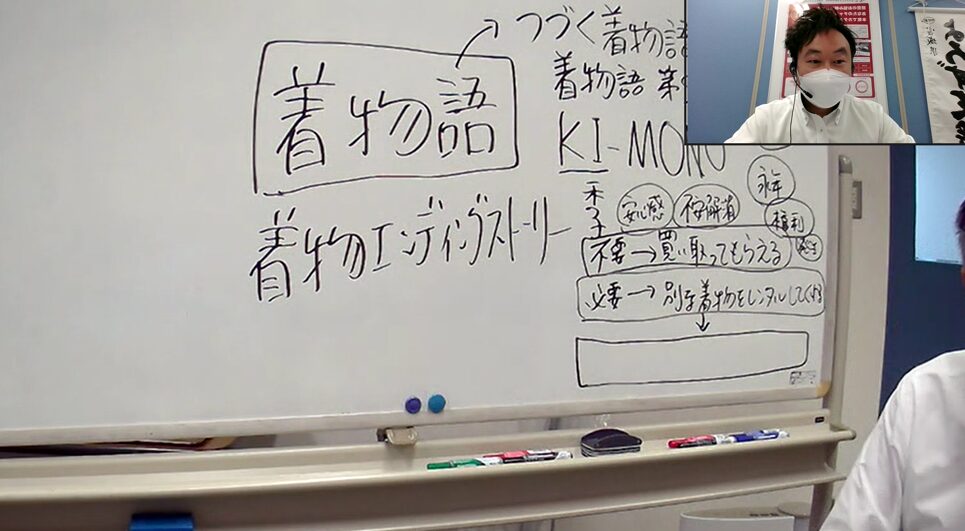 つづく着物語
着物語
着物語 第
KI-MONO
着物エンディングストーリー
季
安心感
不安解消
永年
権利
不要→買い取ってもらえる
必要→別な着物をレンタルしてくれる